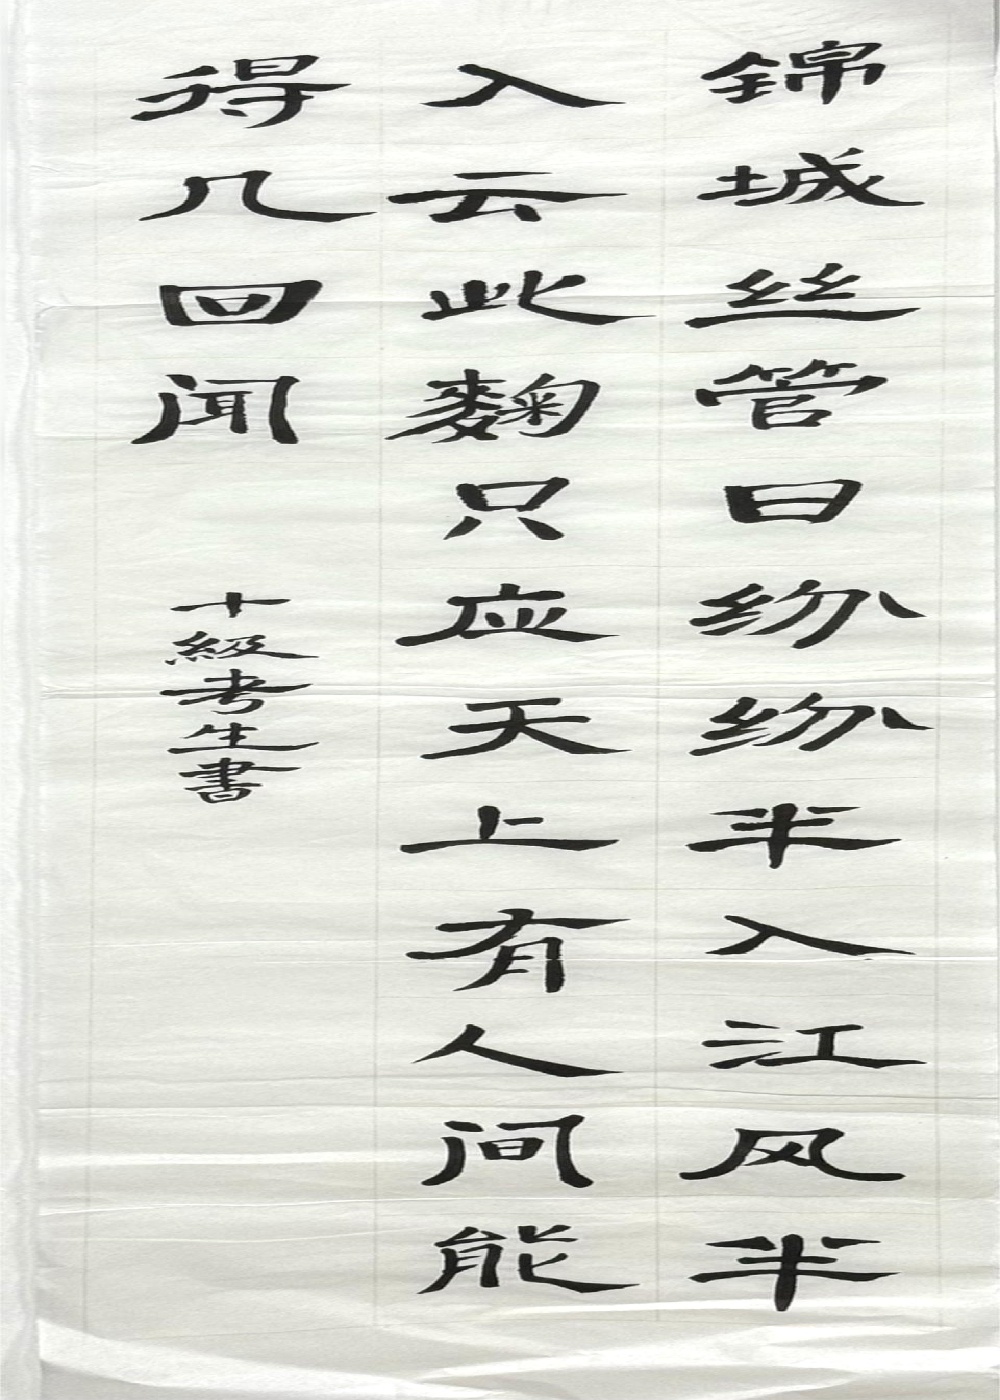 锦城丝管日纷纷半入江风半
入云此麴只应天上有人间能
得几回闻
十級考生書